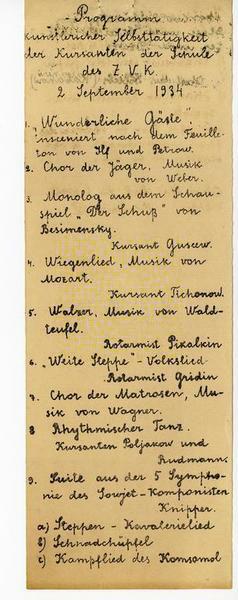 - Programm
künstlericher Selbsttätigkeit
der Kursanten der Schule
des Z.V.K.
2 September 1934
1. „Wunderliche Gäste".
insceniert nach dem Feuille-
ton von Ilf und Petrow.
2. Chor der Jäger, Musik
von Weber.
3. Monolog aus dem Schau-
spiel „Der Schuß" von
Besimensky.
Kursant Gusew.
4. Wiegenlied, Musik von
Mozart.
Kursant Tichonow.
5. Walzer, Musik von Wald-
teufel.
Rotarmist Pikalkin
6. „Weite Steppe" - Volkslied
Rotarmist Gridin
7. Chor der Matrosen, Mu-
sik von Wagner.
8 Rhythmischer Tanz.
Kursanten Poljakow und
Rudmann.
9. Suite aus der 5 Sympho-
nie des Sowjet-Komponisten
Knipper.
a) Steppen - Kavalerielied
b) Schnadahüpfel
c) Kampflied des Komsomol